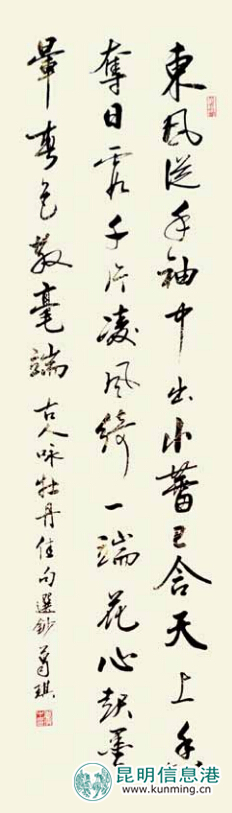 東風從手袖中出小蕾已含天上香
奪日霞千片凌風綺一端花心起墨
暈春色散毫端 古人咏牡丹佳句選鈔 蕭琪
昆明信息港
www.kunming.cn